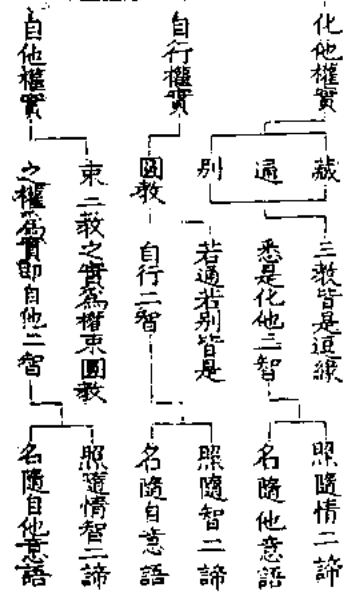 化他權實
藏
通
別
三教皆是逗緣
悉是化他二智
照隨情二諦
名隨他意語
自行權實
圓教
若通若別皆是
自行二智
照隨智二諦
名隨自意語
自他權實
束三教之實為權束圓教
之權為實即自他二智
照隨情智二諦
名隨自他意語